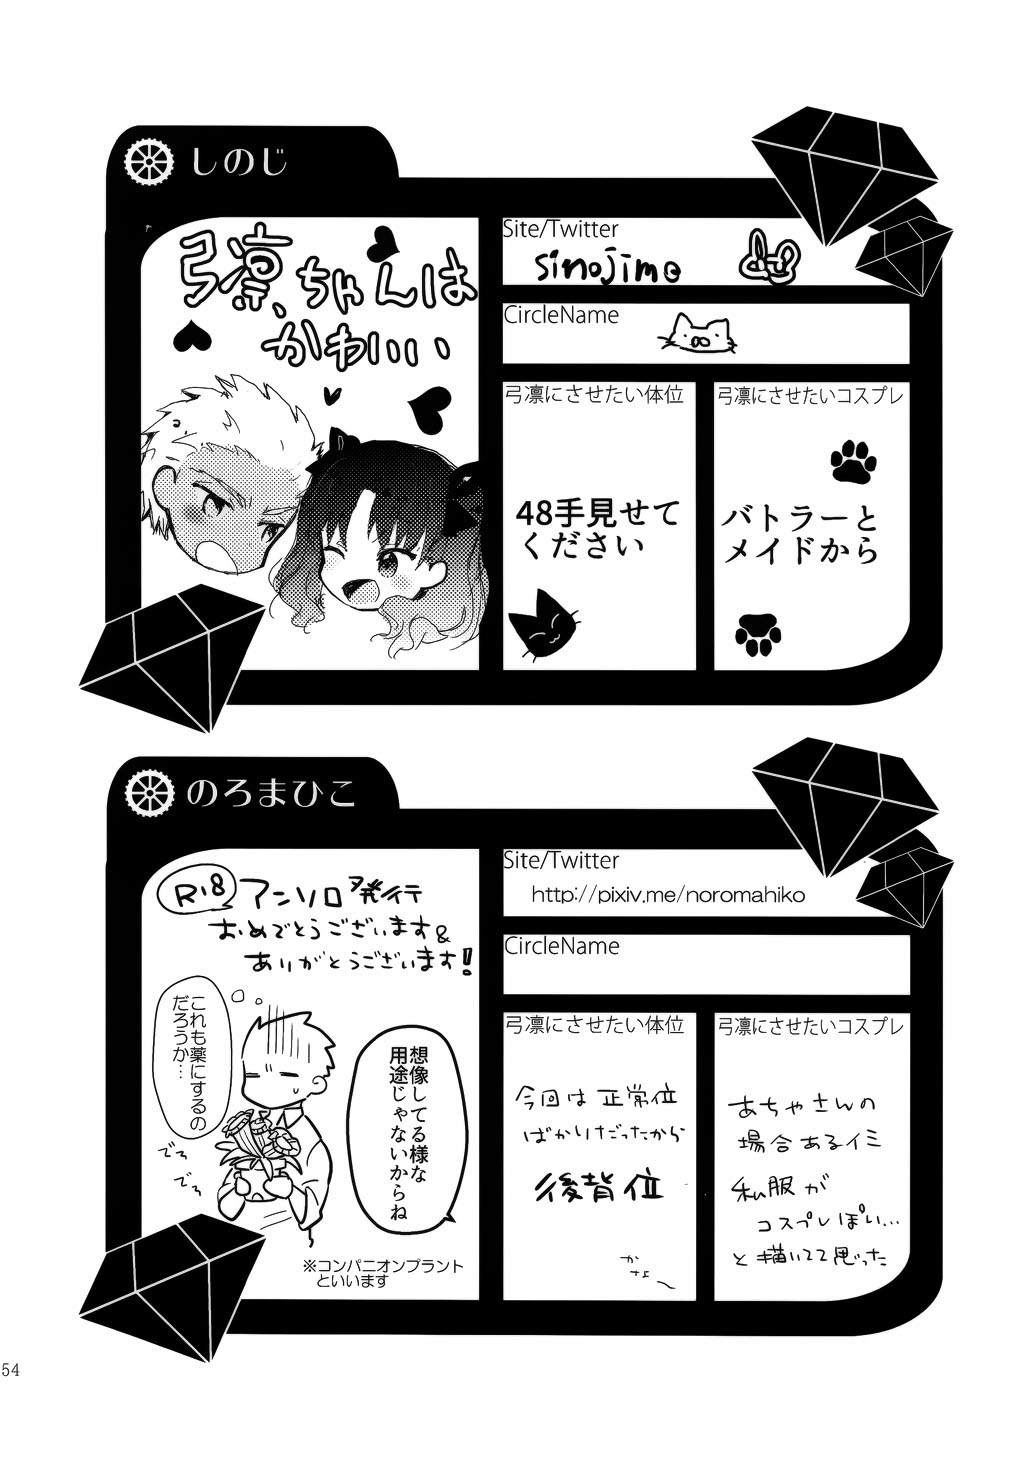 しのじ
弓凛ちゃんは
かわいい
Site/Twitter
sinojime
CircleName
弓凛にさせたい体位
48手見せて
ください
弓凛にさせたいコスプレ
バトラーと
メイドから
のろまひこ
R18 アンソロ発行
おめでとうございます&
ありがとうございます!
これも薬にするの
だろうか…
でろ
でろ
想像してる様な
用途じゃないからね
※コンパニオンプラント
といいます
Site/Twitter
http://pixiv.me/noromahiko
CircleName
弓凛にさせたい体位
今回は正常位
ばかりだったから
後背位
かなぁ〜
弓凛にさせたいコスプレ
あちゃさんの
場合あるイミ
私服が
コスプレぽい…
と描いてて思った
54